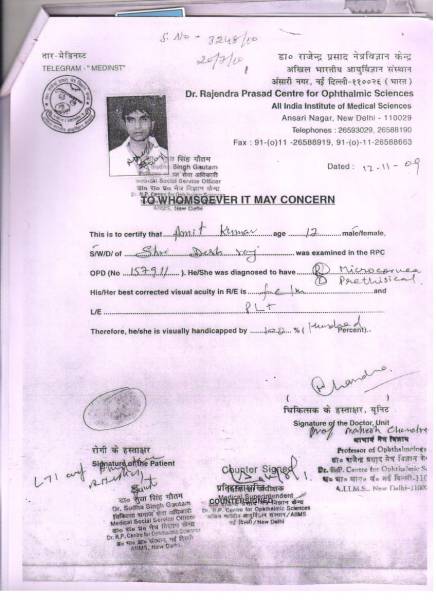 S. No - 3248/10
20/7/10
तार-मेडिनस्ट
TELEGRAM- "MEDINST"
डा० राजेन्द्र प्रसाद नेत्रविज्ञान केन्द्र
अखिल भारतीय आयुर्विज्ञान संस्थान
अंसारी नगर, नई दिल्ली-११००२९ (भारत)
Dr. Rajendra Prasad Centre for Ophthalmic Sciences
All India Institute of Medical Sciences
Ansari Nagar, New Delhi - 110029
Telephones : 26593029, 26588190
Fax : 91-(o)11 -26588919, 91-(o)-11-26588663
सिंह गौतम
Singh Gautam
Medical Social Service Officer
Dr. R.P. Centre for Ophthalmic Sciences
AIIMS, New Delhi
Dated : 12-11-09
TO WHOMSOEVER IT MAY CONCERN
This is to certify that Amit Kumar age 12 male/female,
S/W/D/ of Shri Desh raj was examined in the RPC
OPD (No 157911 ). He/She was diagnosed to have Microcornea
Prethisical
His/Her best corrected visual acuity in R/E is and
L/E PL+
Therefore, he/she is visually handicapped by 100 % (Hundred Percent)..
Chandra
चिकित्सक के हस्ताक्षर, यूनिट
Signature of the Doctor, Unit
Prof Mahesh Chandra
आचार्य नेत्र विज्ञान
Professor of Ophthalmology
Dr. R.P. Centre for Ophthalmic
A.I.I.M.S., New Delhi-110
रोगी के हस्ताक्षर
Signature of the Patient
LTI of
Counter Signed
Medical Superintendent
COUNTERSIGNED
Dr. R.P. Centre for Ophthalmic Sciences
नई दिल्ली/New Delhi
डा० सुधा सिंह गौतम
Dr. Sudha Singh Gautam
चिकित्सा समाज सेवा अधिकारी
Medical Social Service Officer
Dr. R.P. Centre for Ophthalmic Sciences
AIIMS, New Delhi